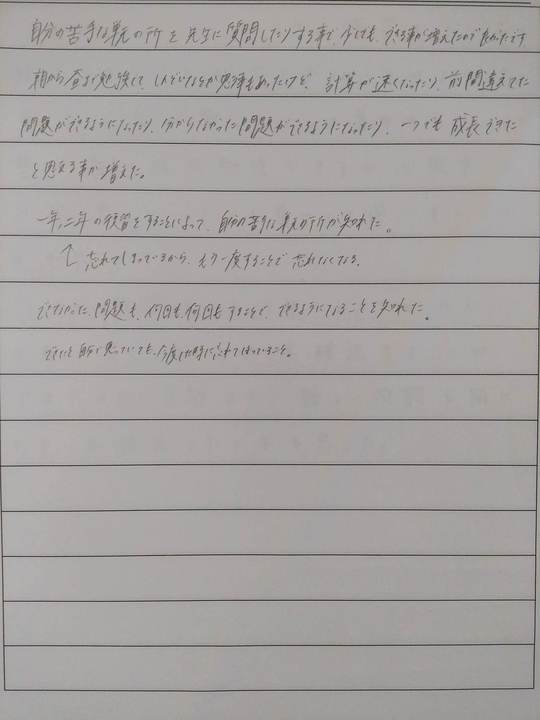 自分の苦手な単元の所を先生に質問したりする事で、少しでも、できる事が増えたのでよかったです
朝から昼まで勉強して、しんどいなとか思う事もあったけど、計算が速くなったり、前間違えてた
問題ができるようになったり、分からなかった問題ができるようになったり、一つでも成長できた
と思える事が増えた。
一年、二年の復習をすることによって、自分の苦手な単元の所が知れた。
↑忘れてしまっているから、もう一度することで忘れなくなる。
できなかった問題も、何回も何回もすることで、できるようになることを知れた。
できたと自分で思っていても、今度した時に忘れてしまっていること。